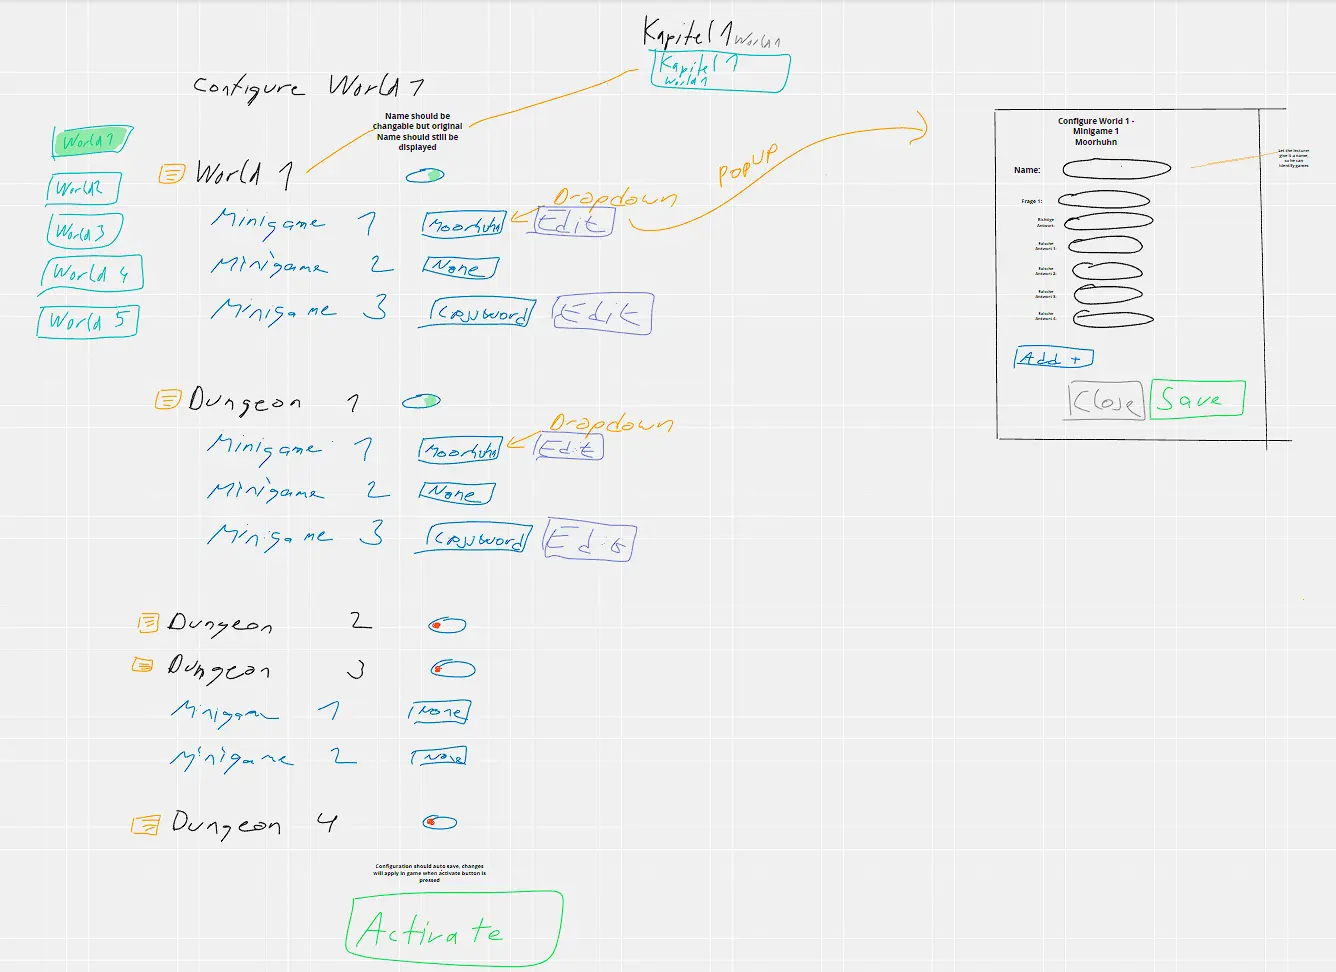 Kapitel 1 World 1
Kapitel 1
World 1
Configure World 1
Name should be
changable but original
Name should still be
displayed
World 1
World 2
World 3
World 4
World 5
World 1
Minigame 1 Moorhuhn Edit
Dropdown
Minigame 2 None
Minigame 3 Crossword Edit
POPUP
Dungeon 1
Minigame 1 Moorhuhn Edit
Dropdown
Minigame 2 None
Minigame 3 Crossword Edit
Dungeon 2
Dungeon 3
Minigame 1 None
Minigame 2 None
Dungeon 4
Configuration should auto save, changes
will apply in game when activate button is
pressed
Activate
Configure World 1 -
Minigame 1
Moorhuhn
Name:
Let the lecturer
give it a name,
so he can
identify games
Frage 1:
Richtige
Antwort:
Falsche
Antwort 1:
Falsche
Antwort 2:
Falsche
Antwort 3:
Falsche
Antwort 4:
Add +
Close Save